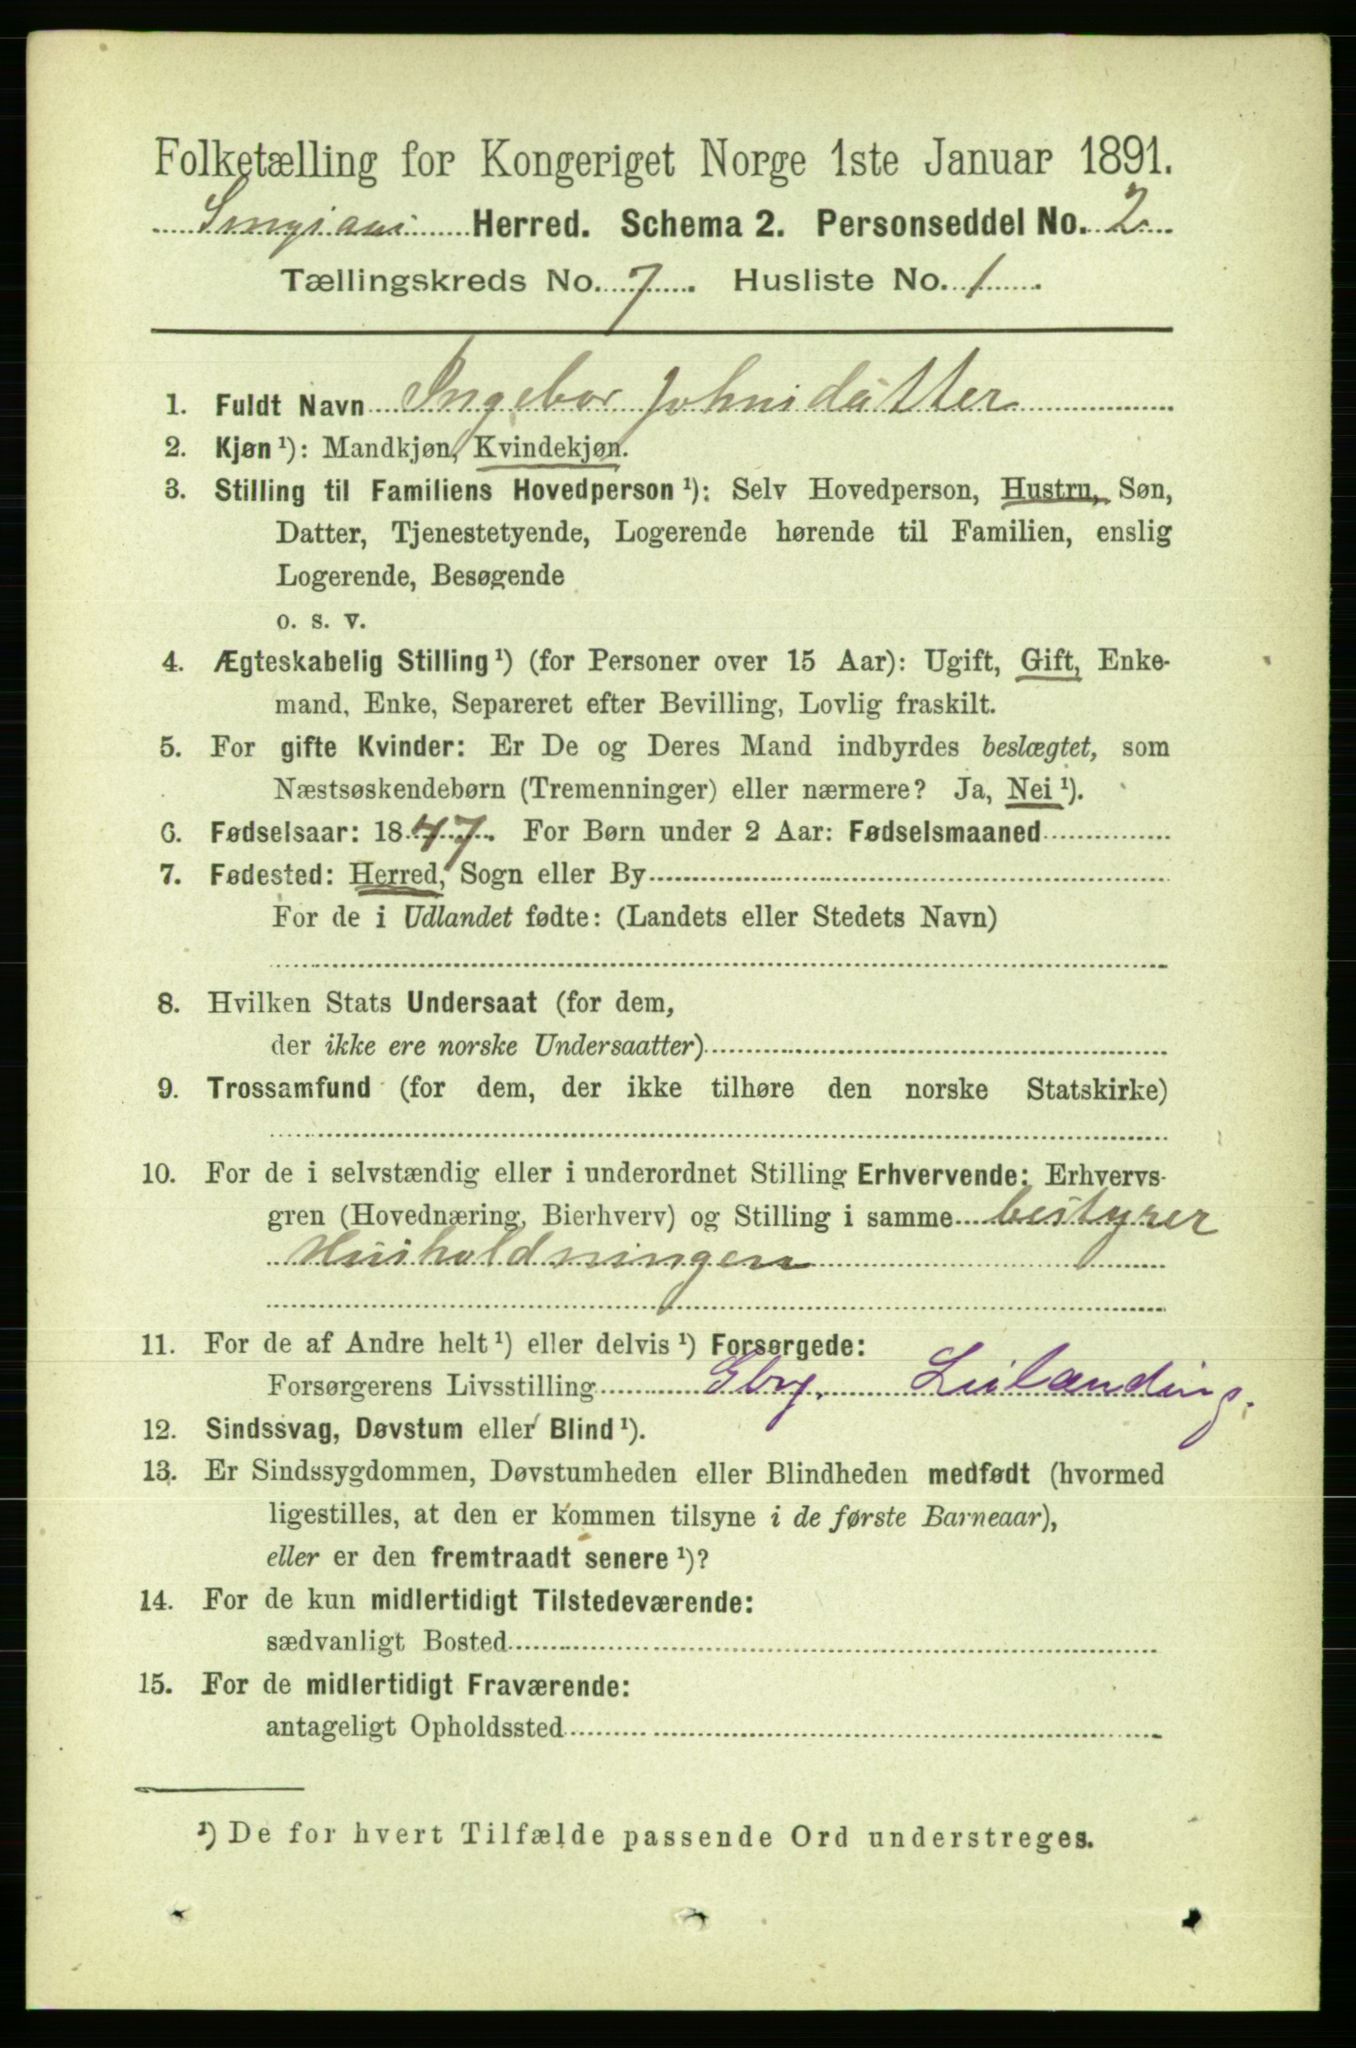 Folketælling for Kongeriget Norge 1ste Januar 1891.
Herred. Schema 2. Personseddel No. 2
Tællingskreds No. 7. Husliste No. 1
1. Fuldt Navn Ingebor Johnsdatter
2. Kjøn ¹): Mandkjøn, Kvindekjøn.
3. Stilling til Familiens Hovedperson ¹): Selv Hovedperson, Hustru, Søn,
Datter, Tjenestetyende, Logerende hørende til Familien, enslig
Logerende, Besøgende
o. s. v.
4. Ægteskabelig Stilling ¹) (for Personer over 15 Aar): Ugift, Gift, Enke-
mand, Enke, Separeret efter Bevilling, Lovlig fraskilt.
5. For gifte Kvinder: Er De og Deres Mand indbyrdes beslægtet, som
Næstsøskendebørn (Tremenninger) eller nærmere? Ja, Nei ¹).
6. Fødselsaar: 1847. For Børn under 2 Aar: Fødselsmaaned
7. Fødested: Herred, Sogn eller By
For de i Udlandet fødte: (Landets eller Stedets Navn)
8. Hvilken Stats Undersaat (for dem,
der ikke ere norske Undersaatter)
9. Trossamfund (for dem, der ikke tilhøre den norske Statskirke)
10. For de i selvstændig eller i underordnet Stilling Erhvervende: Erhvervs-
gren (Hovednæring, Bierhverv) og Stilling i samme bestyrer
Husholdningen
11. For de af Andre helt ¹) eller delvis ¹) Forsørgede:
Forsørgerens Livsstilling Gbr. Leilænding.
12. Sindssvag, Døvstum eller Blind ¹).
13. Er Sindssygdommen, Døvstumheden eller Blindheden medfødt (hvormed
ligestilles, at den er kommen tilsyne i de første Barneaar),
eller er den fremtraadt senere ¹)?
14. For de kun midlertidigt Tilstedeværende:
sædvanligt Bosted
15. For de midlertidigt Fraværende:
antageligt Opholdssted
¹) De for hvert Tilfælde passende Ord understreges.